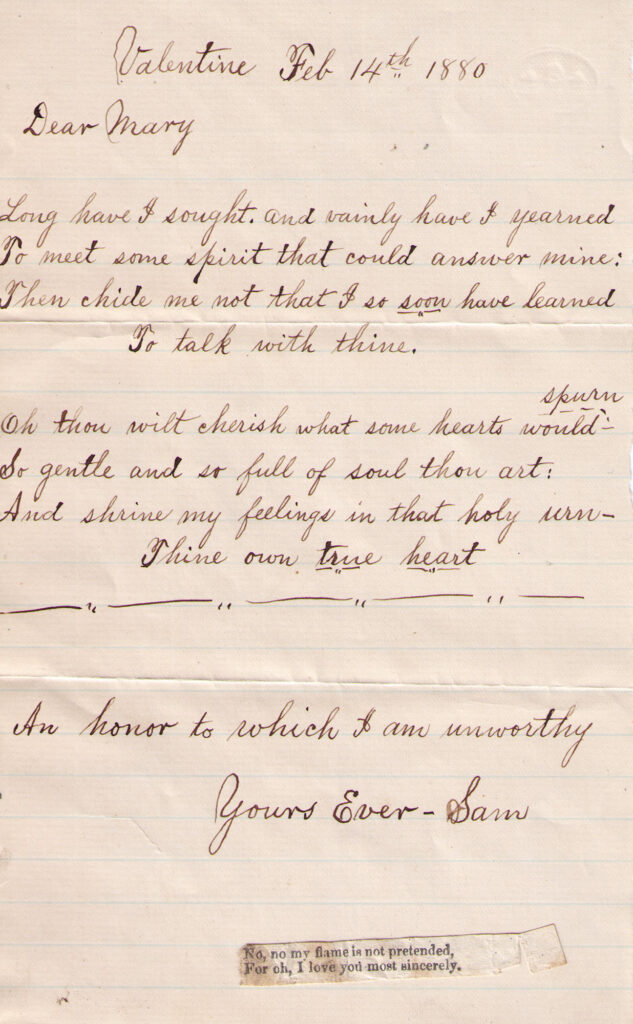 Valentine Feb 14th 1880
Dear Mary
Long have I sought. and vainly have I yearned
To meet some spirit that could answer mine:
Then chide me not that I so soon have learned
To talk with thine.
spurn
Oh thou wilt cherish what some hearts would-
So gentle and so full of soul thou art:
And shrine my feelings in that holy urn-
Thine own true heart
An honor to which I am unworthy
Yours Ever - Sam
No, no my flame is not pretended,
For oh, I love you most sincerely.